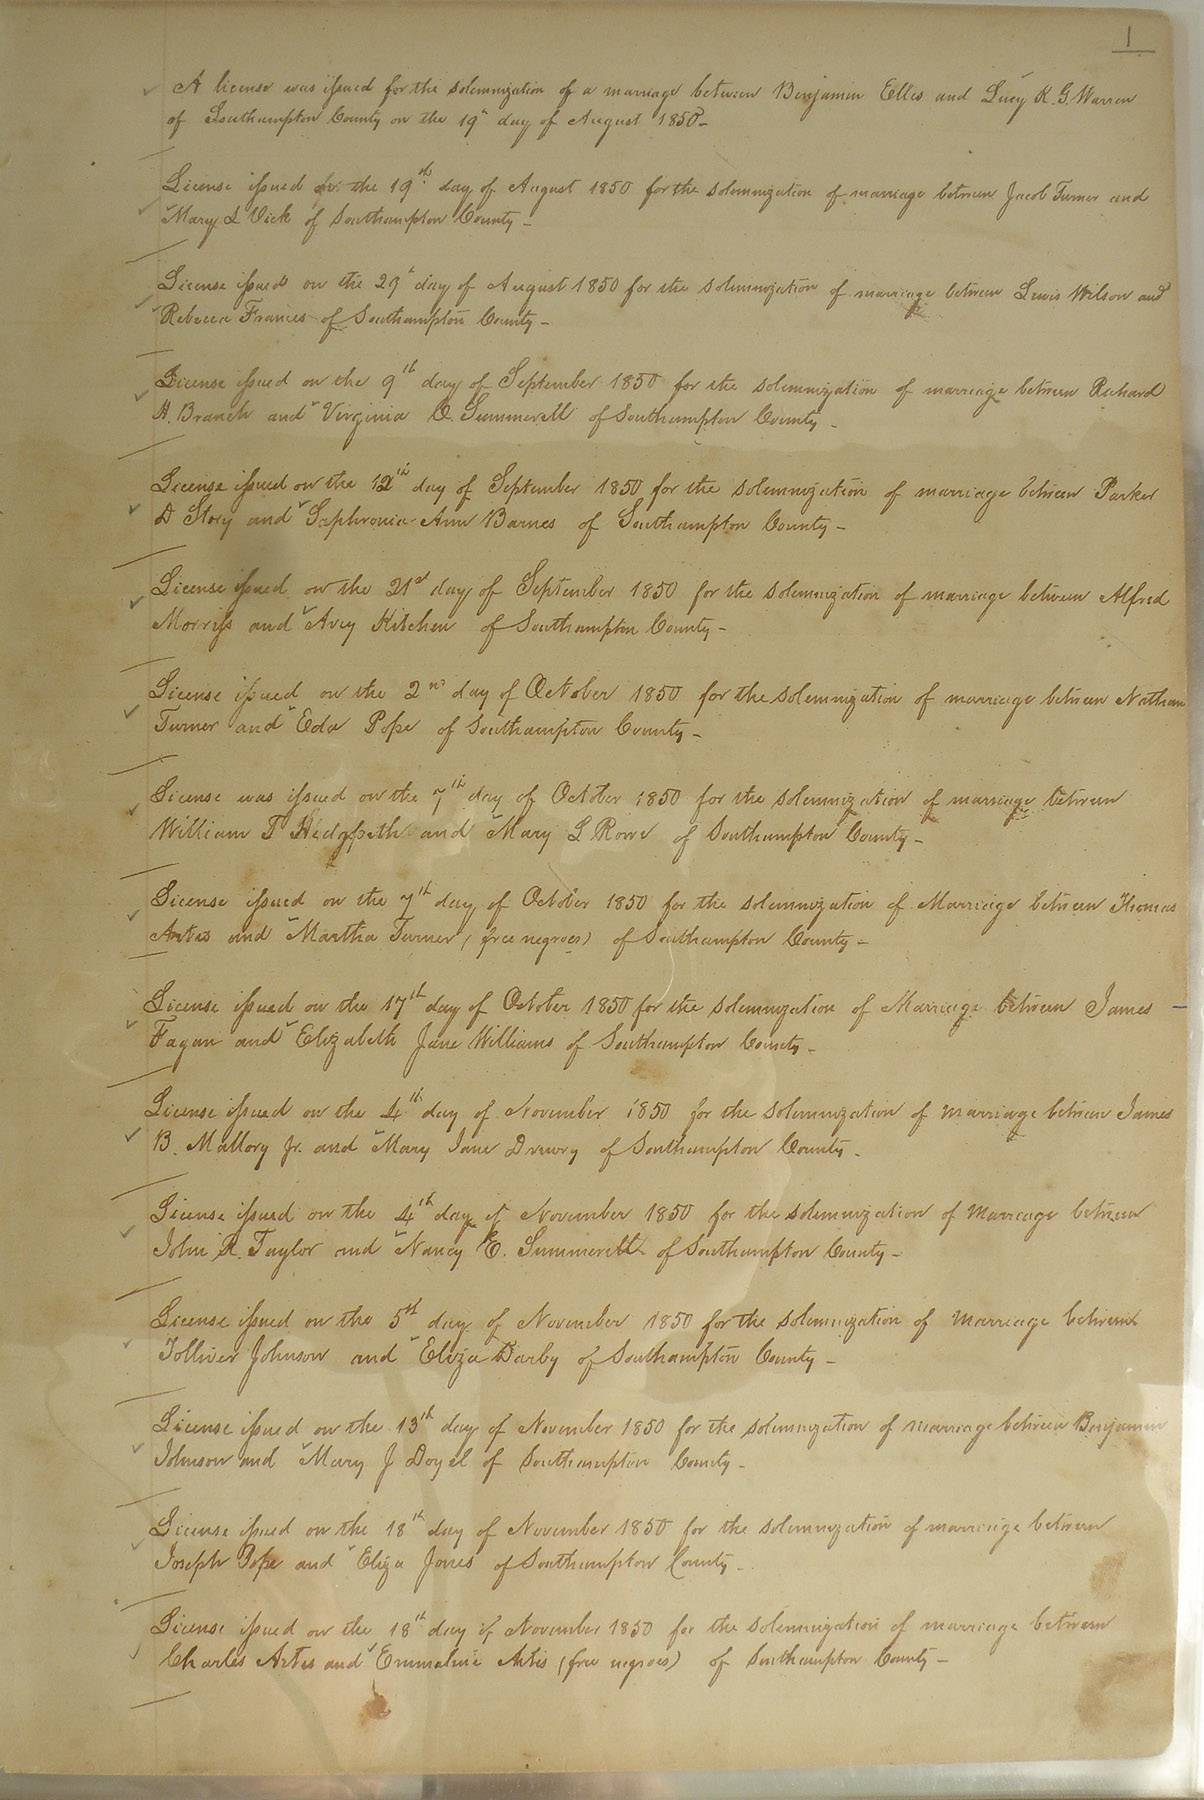 1
A license was issued for the solemnization of a marriage between Benjamin Ellis and Lucy R. G. Warren
of Southampton County on the 19th day of August 1850 –
License issued on the 19th day of August 1850 for the solemnization of marriage between Jacob Turner and
Mary L Vick of Southampton County –
License issued on the 29th day of August 1850 for the solemnization of marriage between Lewis Wilson and
Rebecca Frances of Southampton County –
License issued on the 9th day of September 1850 for the solemnization of marriage between Richard
H. Branch and Virginia C. Summerell of Southampton County –
License issued on the 12th day of September 1850 for the solemnization of marriage between Parker
D Story and Sophronia Ann Barnes of Southampton County –
License issued on the 21st day of September 1850 for the solemnization of marriage between Alfred
Morriss and Avey Kitchen of Southampton County –
License issued on the 2nd day of October 1850 for the solemnization of marriage between Nathan
Turner and Eda Pope of Southampton County –
License was issued on the 7th day of October 1850 for the solemnization of marriage between
William T Hedgpeth and Mary L Rowe of Southampton County –
License issued on the 7th day of October 1850 for the solemnization of Marriage between Thomas
Artis and Martha Turner (free negroes) of Southampton County –
License issued on the 17th day of October 1850 for the solemnization of Marriage between James
Fagan and Elizabeth Jane Williams of Southampton County –
License issued on the 4th day of November 1850 for the solemnization of marriage between James
B. Mallory Jr. and Mary Jane Drewry of Southampton County –
License issued on the 4th day of November 1850 for the solemnization of Marriage between
John R. Taylor and Nancy E. Summerell of Southampton County –
License issued on the 5th day of November 1850 for the solemnization of Marriage between
Tolliver Johnson and Eliza Darby of Southampton County –
License issued on the 13th day of November 1850 for the solemnization of marriage between Benjamin
Johnson and Mary J Doyel of Southampton County –
License issued on the 18th day of November 1850 for the solemnization of marriage between
Joseph Pope and Eliza Jones of Southampton County –
License issued on the 18th day of November 1850 for the solemnization of marriage between
Charles Artis and Emmaline Artis (free negroes) of Southampton County –